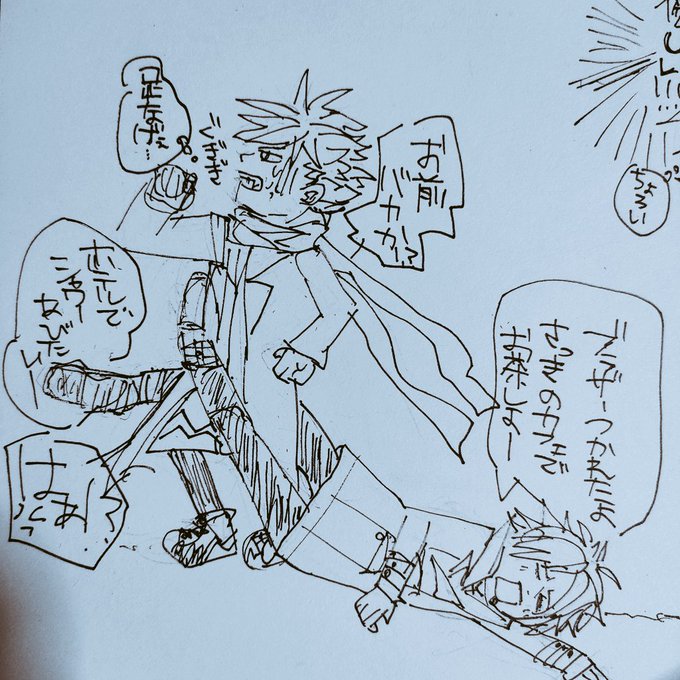 ちょろい
お前
バカか?
ぐぎぎ
足なげぇ…
ブラザーつかれたよ
さっきのカフェで
お茶しよー
ホテルで
シャワー
あびたい
はあ